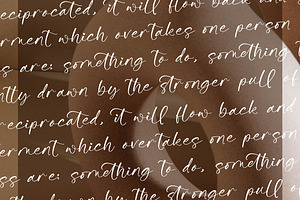 reciprocated, it will flow back and
erment which overtakes one person
ss are: something to do, something
ntly drawn by the stronger pull of
reciprocated, it will flow back and
erment which overtakes one person
ss are: something to do, something
drawn by the stronger pull of